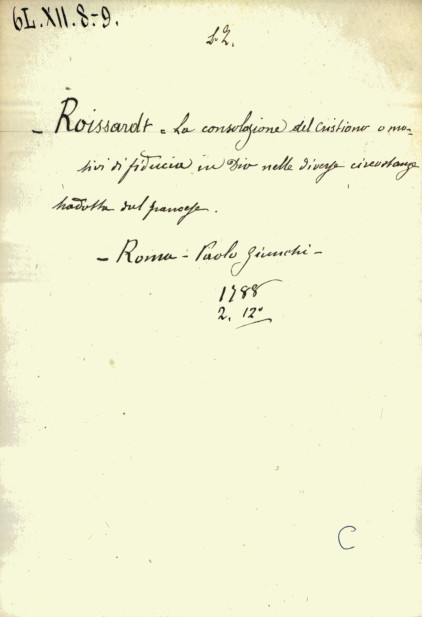 6L.XII.8-9.
s.2.
- Roissardt = La consolazione del Cristiano o mo-
tivi di fiducia in Dio nelle diverse circostanze
tradotta dal francese.
- Roma - Paolo Giunchi -
1788
2. 12°
C